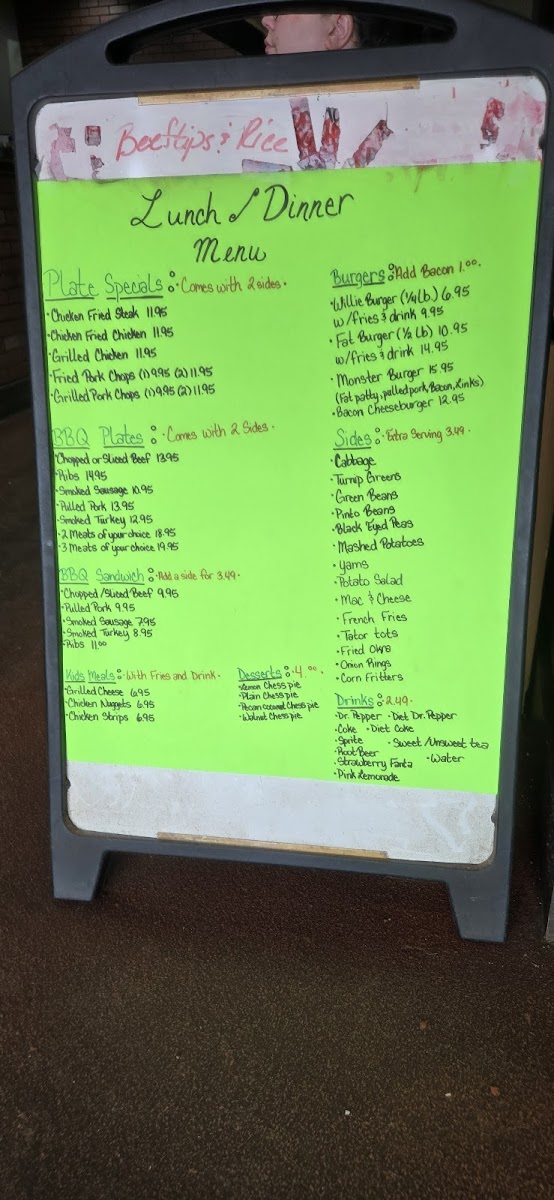 Beeftips & Rice
Lunch / Dinner
Menu
Plate Specials: • Comes with 2 sides •
• Chicken Fried Steak 11.95
• Chicken Fried Chicken 11.95
• Grilled Chicken 11.95
• Fried Pork Chops (1) 9.95 (2) 11.95
• Grilled Pork Chops (1) 9.95 (2) 11.95
BBQ Plates: • Comes with 2 Sides •
• Chopped or Sliced Beef 13.95
• Ribs 14.95
• Smoked Sausage 10.95
• Pulled Pork 13.95
• Smoked Turkey 12.95
• 2 Meats of your choice 18.95
• 3 Meats of your choice 19.95
BBQ Sandwich: • Add a side for 3.49 •
• Chopped/Sliced Beef 9.95
• Pulled Pork 9.95
• Smoked Sausage 7.95
• Smoked Turkey 8.95
• Ribs 11.00
Kids Meals: • With Fries and Drink •
• Grilled Cheese 6.95
• Chicken Nuggets 6.95
• Chicken Strips 6.95
Desserts: • 4.00 •
• Lemon Chess pie
• Plain Chess pie
• Pecan coconut Chess pie
• Walnut Chess pie
Burgers: • Add Bacon 1.00 •
• Willie Burger (1/4 lb.) 6.95
w/fries & drink 9.95
• Fat Burger (1/2 lb) 10.95
w/fries & drink 14.95
• Monster Burger 15.95
(Fat patty, pulled pork, Bacon, Links)
• Bacon Cheeseburger 12.95
Sides: • Extra Serving 3.49 •
• Cabbage
• Turnip Greens
• Green Beans
• Pinto Beans
• Black Eyed Peas
• Mashed Potatoes
• Yams
• Potato Salad
• Mac & Cheese
• French Fries
• Tator tots
• Fried Okra
• Onion Rings
• Corn Fritters
Drinks: 2.49 •
• Dr. Pepper • Diet Dr. Pepper
• Coke • Diet Coke
• Sprite • Sweet/Unsweet tea
• Root Beer • Water
• Strawberry Fanta
• Pink Lemonade